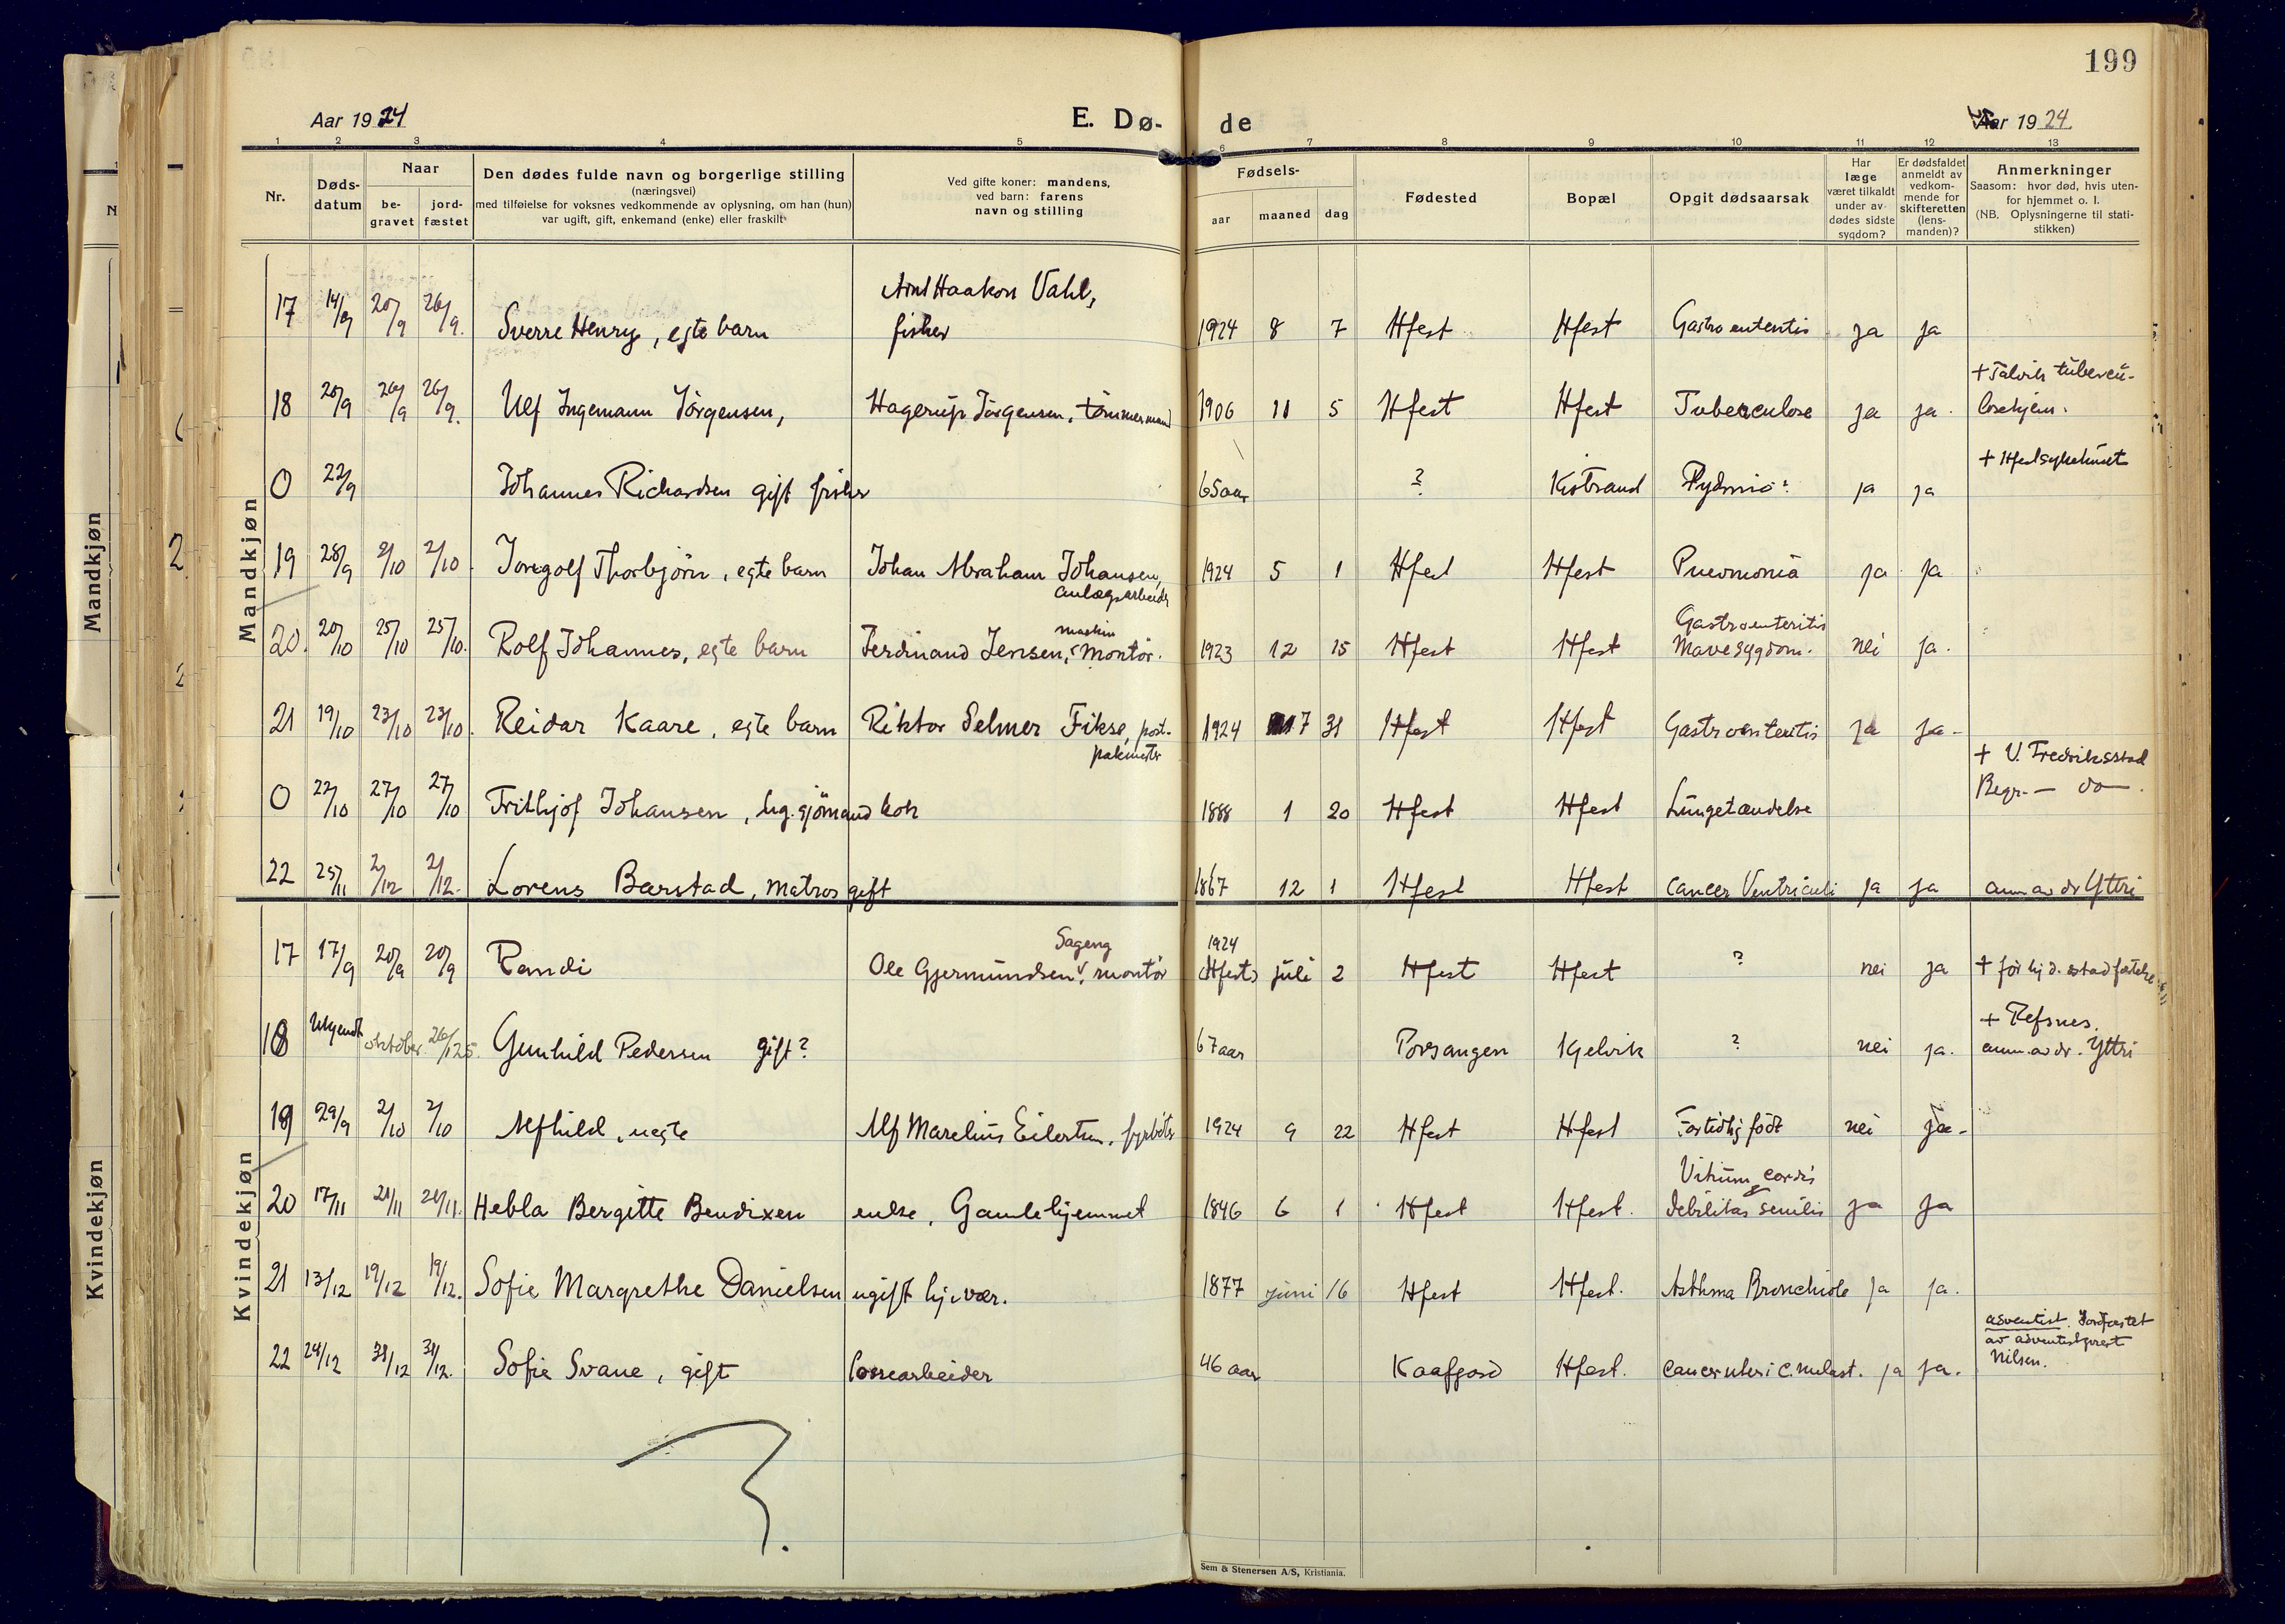 199
Aar 1924
E. Dø-
de
Aar 1924.
1 2 3 4 5 6 7 8 9 10 11 12 13
Nr.
Døds-
datum
Naar
be-
gravet
jord-
fæstet
Den dødes fulde navn og borgerlige stilling
(næringsvei)
med tilføielse for voksnes vedkommende av oplysning, om han (hun)
var ugift, gift, enkemand (enke) eller fraskilt
Ved gifte koner: mandens,
ved barn: farens
navn og stilling
Fødsels-
aar
maaned
dag
Fødested
Bopæl
Opgit dødsaarsak
Har
læge
været tilkaldt
under av-
dødes sidste
sygdom?
Er dødsfaldet
anmeldt av
vedkom-
mende for
skifteretten
(lens-
manden)?
Anmerkninger
Saasom: hvor død, hvis uten-
for hjemmet o. l.
(NB. Oplysningerne til stati-
stikken)
Mandkjøn
Mandkjøn
Arnt Haakon Vahl,
17 14/9 20/9 26/9. Sverre Henry, egte barn fisker 1924 8 7 Hfest Hfest Gastroenteritis ja ja
+ Talvik tubercu-
18 20/9 26/9 26/9. Ulf Ingemann Jörgensen, Hagerup Jörgensen, tömmermand 1906 11 5 Hfest Hfest Tuberculose ja ja. losehjem.
+ Hfest sykehuset
0 22/9 Johannes Richardsen gift fisker 65 aar ? Kistrand ja ja
19 28/9 2/10 2/10. Ingolf Thorbjörn, egte barn Johan Abraham Johansen, 1924 5 1 Hfest Hfest Pneumonia ja ja
anlægsarbeider
maskin Gastroenteritis
20. 20/10 25/10 25/10. Rolf Johannes, egte barn Ferdinand Jensen, montör. 1923 12 15 Hfest Hfest Mavesygdom. nei ja.
21 19/10 23/10 23/10. Reidar Kaare, egte barn Riktor Selmer Fikse, post- 1924 7 31 Hfest Hfest Gastroenteritis ja ja-
pakmester
+ V. Fredriksstad
Begr. — do —.
0 22/10 27/10 27/10 Frithjof Johansen, ug. sjömand kok 1888 1 20 Hfest Hfest Lungetændelse
22 25/11 2/12 2/12. Lorens Barstad, matros gift 1867 12 1 Hfest Hfest Cancer Ventriculi ja ja anm av dr Yttri
Kvindekjøn
Kvindekjøn
Sageng 1924
17 17/9 20/9 20/9 Randi Ole Gjermundsen montör (Hfest) juli 2 Hfest Hfest ? nei ja + för hj.d. stadfæstelse
+ Refsnes.
18 Ukjendt oktober 26/1 25. Gunhild Pedersen gift? 67 aar Porsangen Kjelvik ? nei ja. anm. av dr. Yttri
19 29/9 2/10 2/10 Alfhild, uegte Alf Marelius Eilertsen, fyrböter 1924 9 22 Hfest Hfest Fortidlig födt nei ja-
Vitium cordis
20 17/11 21/11 21/11. Hebla Bergitte Bendixen enke, Gamlehjemmet 1846 6 1 Hfest Hfest. & debilitas senilis ja ja
21 13/12 19/12 19/12. Sofie Margrethe Danielsen ugift hj. vær. 1877 juni 16 Hfest Hfest. Asthma Bronchiole ja ja.
adventist. Jordfæstet
av adventistprest
Nilsen.
22 24/12 31/12 31/12. Sofie Svane, gift lossearbeider 46 aar Kaafjord Hfest. Cancer uteri ja ja.
Sem & Stenersen A/S, Kristiania.